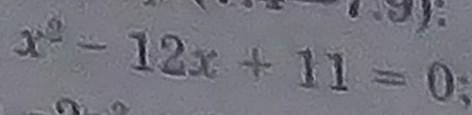 7.9):
x² - 12x + 11 = 0;